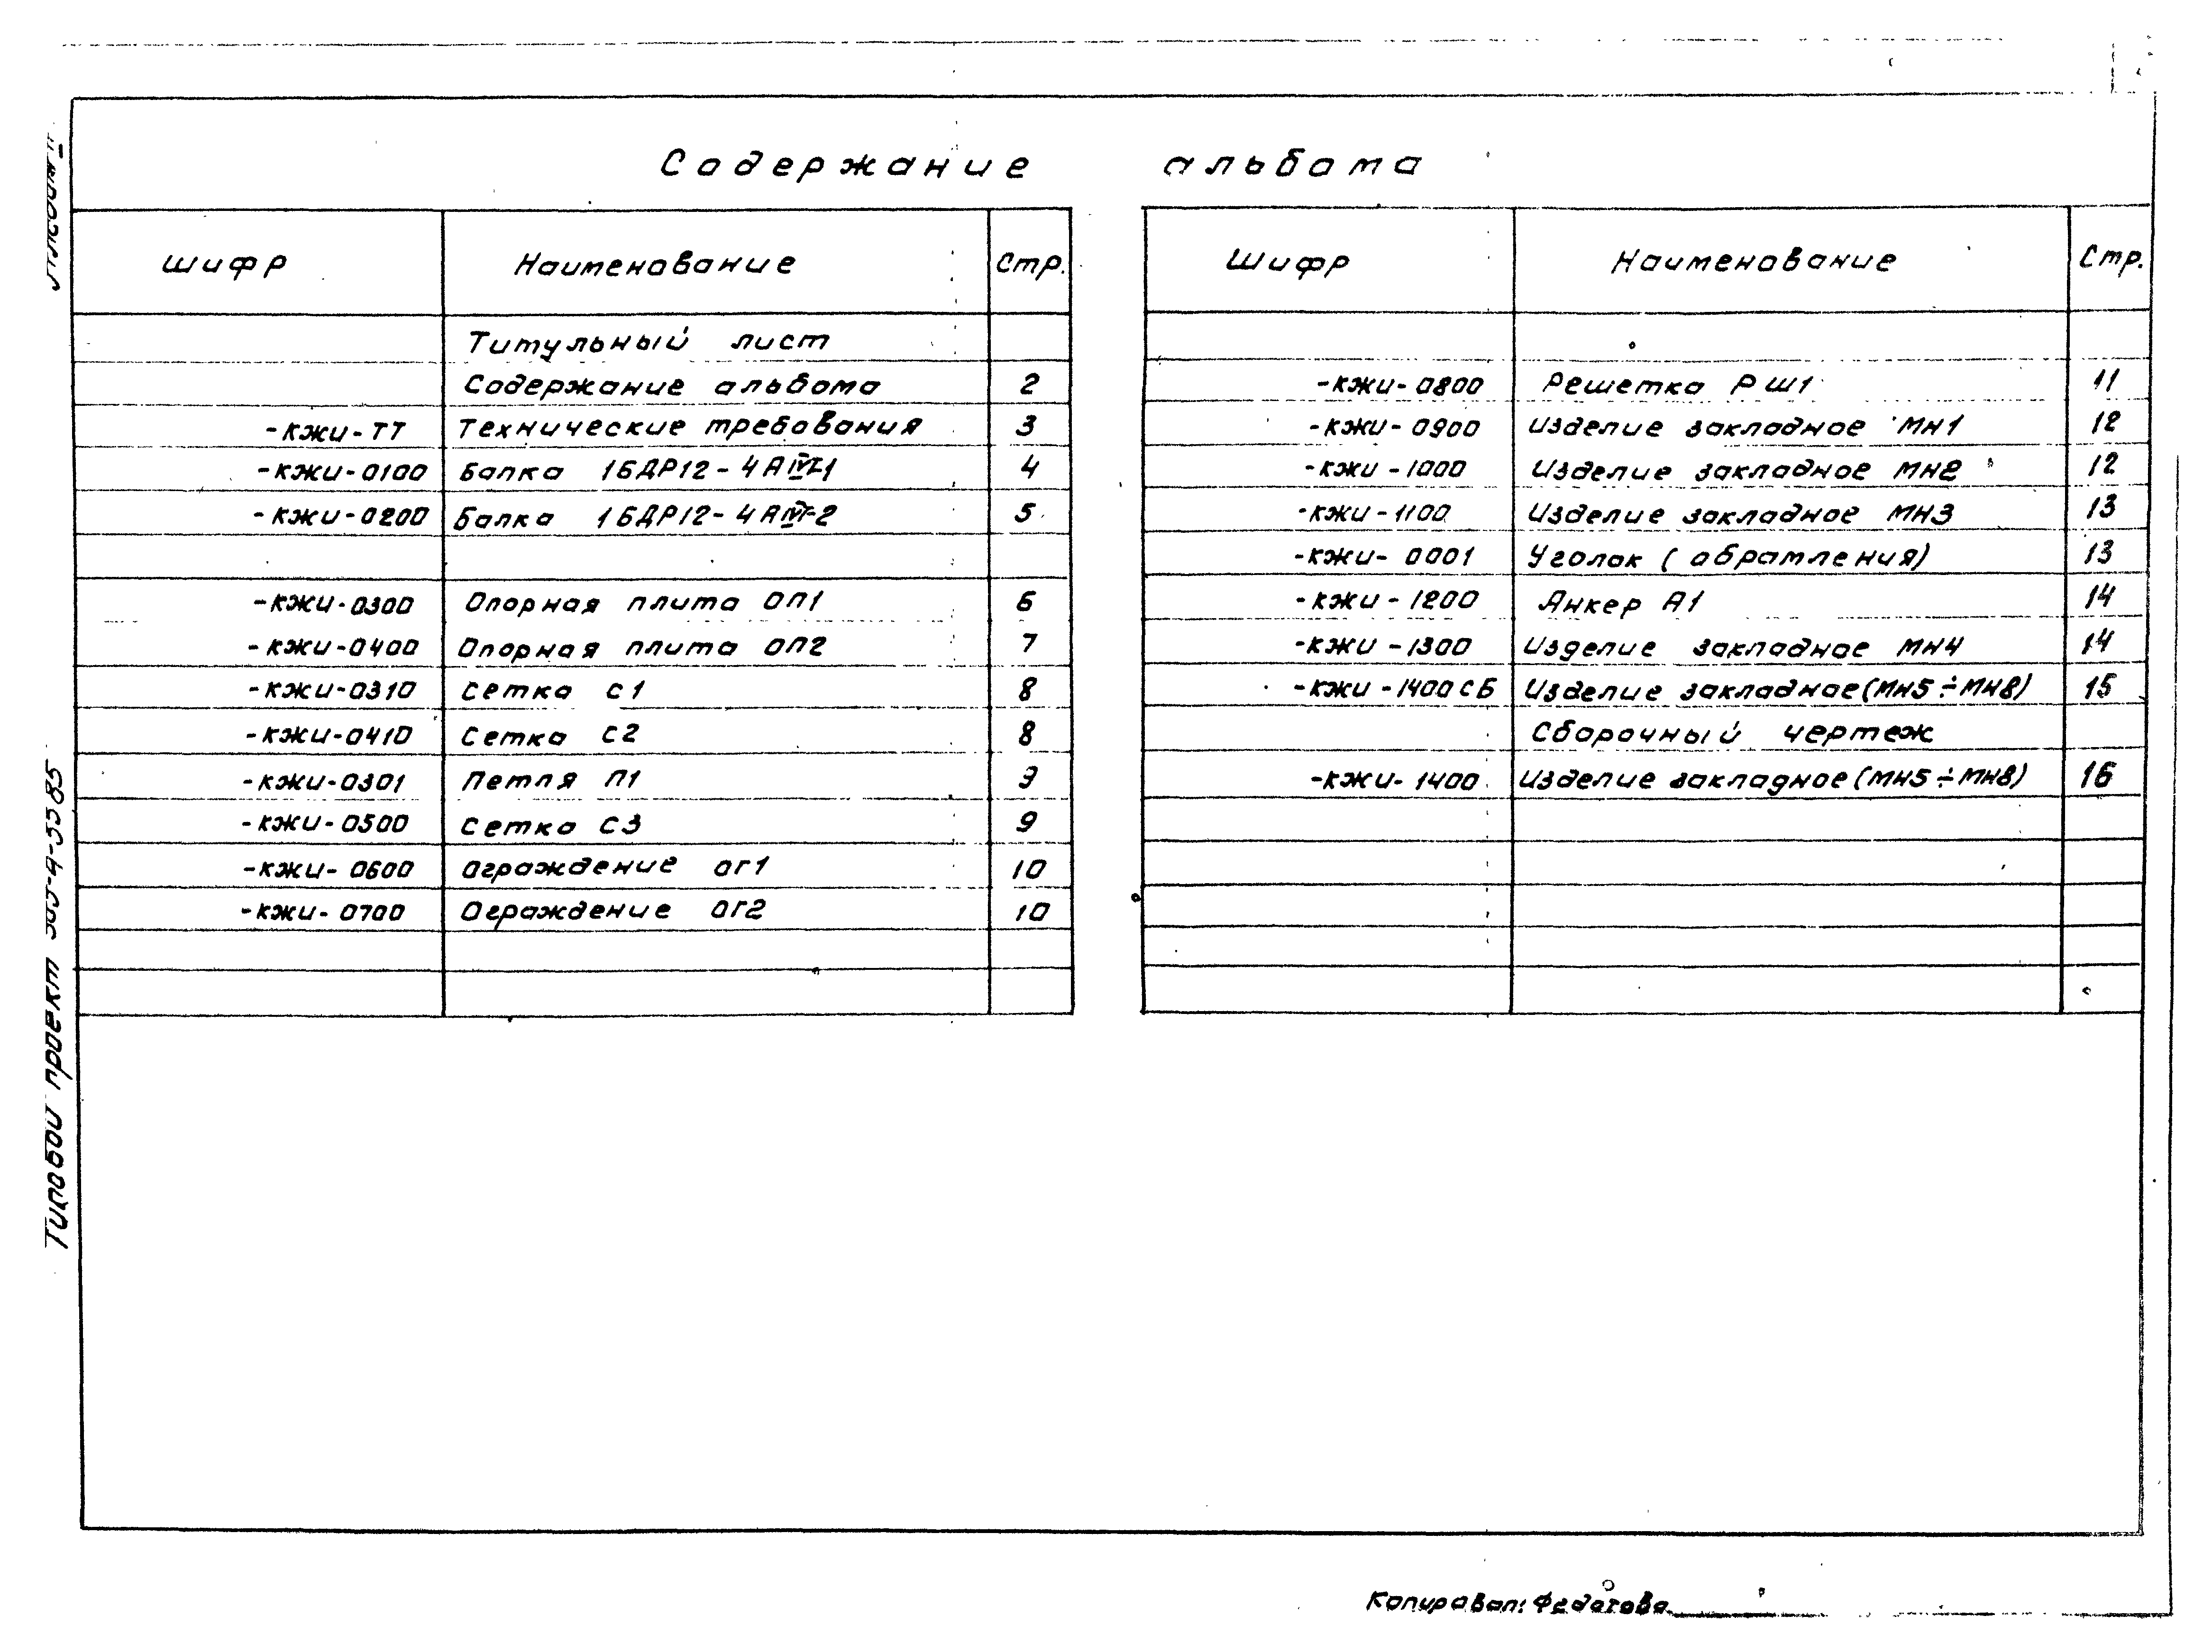 Содержание альбома
Шифр Наименование Стр.
Титульный лист
Содержание альбома 2
-КЖИ-ТТ Технические требования 3
-КЖИ-0100 Балка 1БДР12-4АIV-1 4
-КЖИ-0200 Балка 1БДР12-4АIV-2 5
-КЖИ-0300 Опорная плита ОП1 6
-КЖИ-0400 Опорная плита ОП2 7
-КЖИ-0310 Сетка С1 8
-КЖИ-0410 Сетка С2 8
-КЖИ-0301 Петля П1 9
-КЖИ-0500 Сетка С3 9
-КЖИ-0600 Ограждение ОГ1 10
-КЖИ-0700 Ограждение ОГ2 10
Шифр Наименование Стр.
-КЖИ-0800 Решетка РШ1 11
-КЖИ-0900 Изделие закладное МН1 12
-КЖИ-1000 Изделие закладное МН2 12
-КЖИ-1100 Изделие закладное МН3 13
-КЖИ-0001 Уголок (обрамления) 13
-КЖИ-1200 Анкер А1 14
-КЖИ-1300 Изделие закладное МН4 14
-КЖИ-1400СБ Изделие закладное (МН5÷МН8) 15
Сборочный чертеж
-КЖИ-1400 Изделие закладное (МН5÷МН8) 16
Типовой проект
Копировал: Федотова